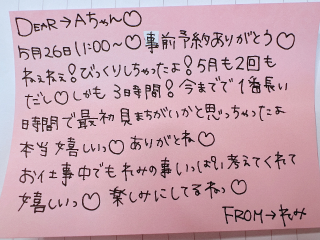 DEAR→Aちゃん♡
5月26日(1:00~♡事前予約ありがとう♡
ねぇねぇ!びっくりしちゃったよ!5月も2回も
だし♡しかも3時間!今までで1番長い
時間で最初見まちがいかと思っちゃったよ
本当嬉しいっ♡ありがとね♡
お仕事中でもれみの事いっぱい考えてくれて
嬉しいっ♡楽しみにしてるねっ♡
FROM→れみ